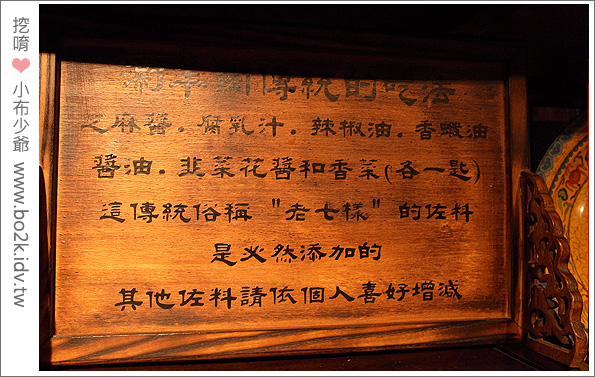 涮羊肉傳統的吃法
芝麻醬．腐乳汁．辣椒油．香蝦油
醬油．韭菜花醬和香菜(各一匙)
這傳統俗稱"老七樣"的佐料
是必然添加的
其他佐料請依個人喜好增減
挖唷❤小布少爺 www.bo2k.idv.tw